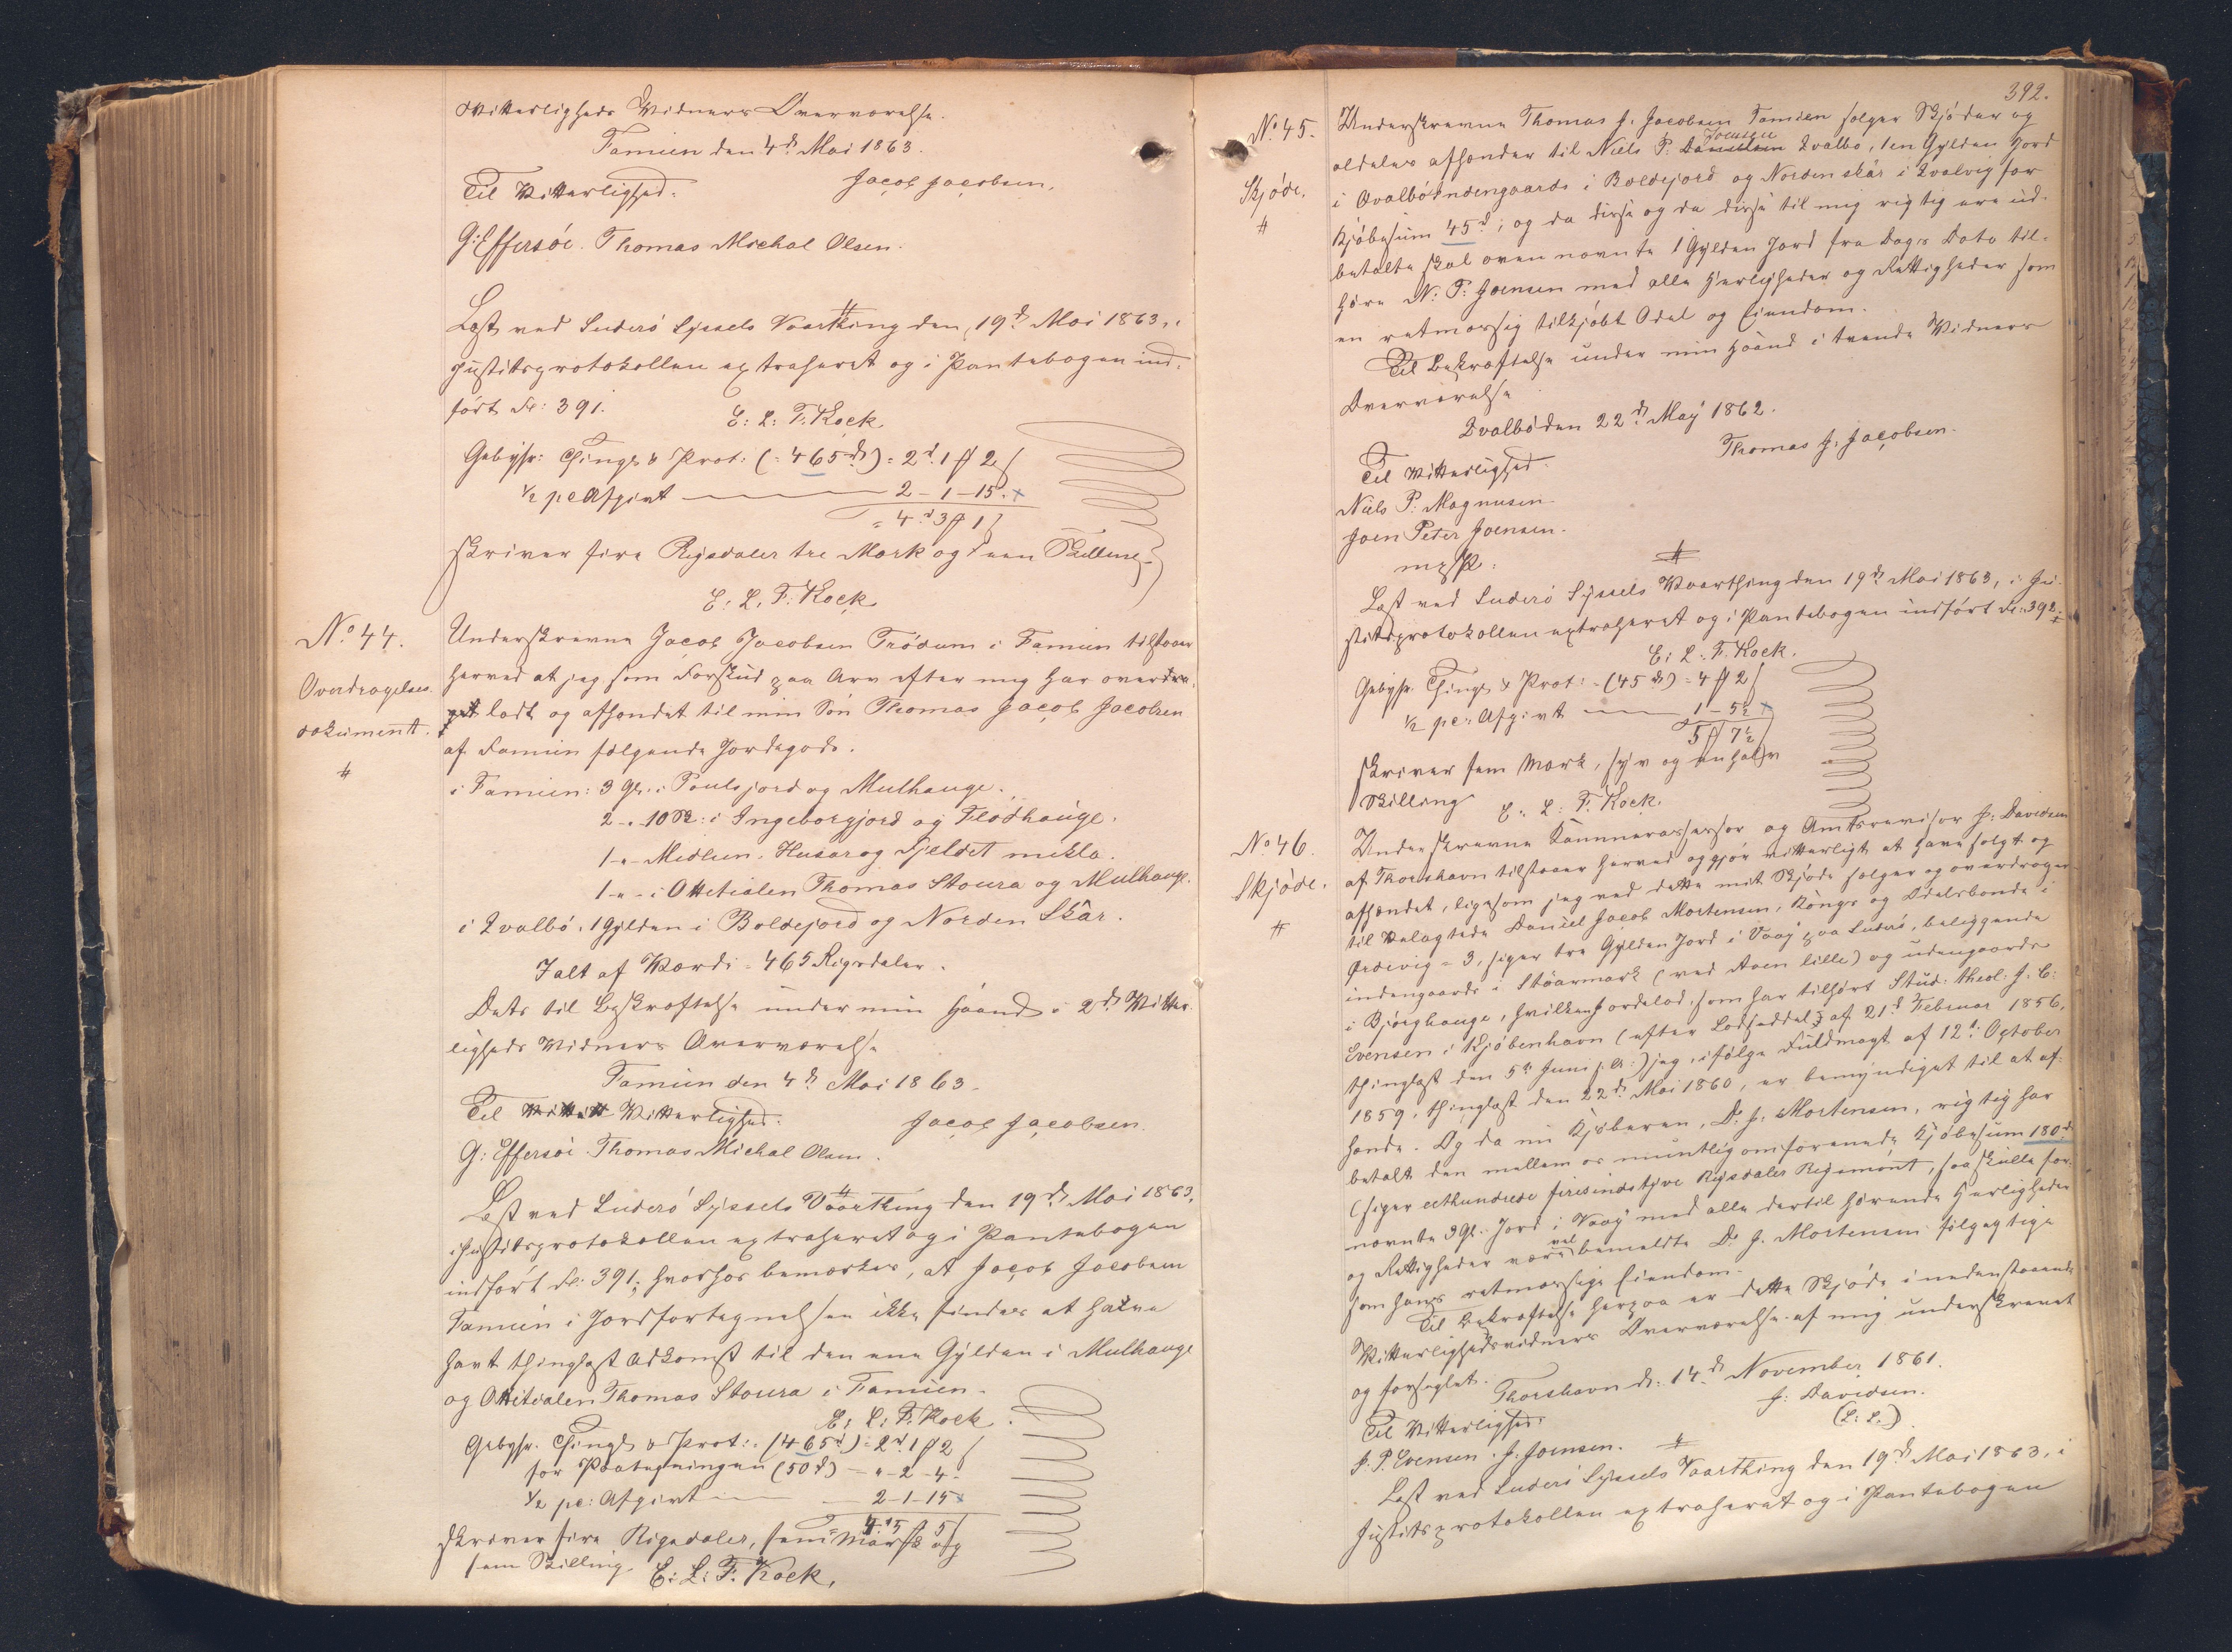 Vitterligheds Vidners Overværelse.
Famien den 4d Mai 1863.
Til Vitterlighed: Jacob Jacobsen.
G: Effersöe. Thomas Michal Olsen.
Læst ved Suderö Syssels Vaarthing den 19d Mai 1863, i
Justitsprotokollen extraheret og i Pantebogen ind-
fört Fo: 391.
E: L: F. Kock
Gebyhr: Thingl. & Prot: (: 465d) = 2d. 1 ß 2
½ pc Afgivt 2 - 1 - 15.
= 4d 3 ß 1
skriver fire Rigsdaler tre Mark og een Skilling
E: L. F: Kock
No. 44.
Overdragelses
dokument.
Underskrevne Jacob Jacobsen Tródum i Famien tilstaar
herved at jeg som Forskud paa Arv efter mig har overdra-
get ladt og afhændet til min Sön Thomas Jacob Jacobsen
af Famien fölgende Jordegods.
i Famien: 3 Gl. i Poulsjord og Mulhauge.
2 - 10 Sk: i Ingeborgjord og Flodhauge.
1 - " - Midlun. Husar og Fjeldet mikla.
1 - " - i Ottetialen Thomas Stoura og Mulhauge.
i Qvalbö. 1 Gylden i Boldejord og Norden Skár.
I alt af Værdi = 465 Rigsdaler.
Dets til Bekræftelse under min Haand i 2de Vitter-
ligheds Vidners Overværelse
Famien den 4d Mai 1863.
Til Vitterlighed: Jacob Jacobsen.
G: Effersöe. Thomas Michal Olsen.
Læst ved Suderö Syssels Vaarthing den 19d Mai 1863,
i Justitsprotokollen extraheret og i Pantebogen
indfört Fo: 391; hvorhos bemærkes, at Jacob Jacobsen
Famien i Jordfortegnelsen ikke findes at have
havt thinglæst Adkomst til den ene Gylden i Mulhauge
og Ottitialen Thomas Stoura i Famien.
E: L: F: Kock.
Gebyhr. Thingl. & Prot: (465d) = 2d. 1 ß 2
for Paategningen (50d) = " - 2 - 4.
½ pc: Afgivt 2 - 1 - 15
4d 5 ß 5
skriver fire Rigsdaler, fem Mark og
fem Skilling. E: L: F: Kock.
392.
No. 45.
Skjöde.
Underskrevne Thomas J. Jacobsen Famien sælger Skjöder og
Joensen
aldeles afhænder til Niels P. Danielsen Qvalbö, 1 en Gylden Jord
i Qvalbö Indengaards i Boldejord og Norden skár i Qvalvig for
Kjöbesum 45d; og da disse og da disse til mig rigtig ere ud-
betalte skal oven nævnte 1 Gylden Jord fra Dags Dato til-
höre N: P: Joensen med alle Herligheder og Rettigheder som
en retmæssig tilkjöbt Odel og Eiendom.
Til Bekræftelse under min Haand i tvende Vidners
Overværelse
Qvalbö den 22d May 1862.
Til Vitterlighed. Thomas J. Jacobsen.
Niels P: Magnusen.
Joen Peter Joensen.
m. p. P:
Læst ved Suderö Syssels Vaarthing den 19d Mai 1863, i Ju-
stitsprotokollen extraheret og i Pantebogen indfört Fo: 392.
E: L: F. Kock.
Gebyhr. Thingl. & Prot: (45d) = 4 ß 2
½ pc: Afgivt 1 - 5½
5 ß 7½
skriver fem Mark, syv og en halv
Skilling E: L: F. Kock.
No. 46.
Skjöde.
Underskrevne Kammerassessor og Amtsrevisor J: Davidsen
af Thorshavn tilstaaer herved og gjör vitterligt at have solgt og
afhændet, ligesom jeg ved dette mit Skjöde sælger og overdrager
til Velagtede Daniel Jacob Mortensen, Kongs og Odelsbonde i
Ördevig = 3, siger tre Gylden Jord i Vaag paa Suderö, beliggende
indengaards i Stöarmark (ved Aaen lille) og udengaards
i Bjørghauge, hvilken Jordelod, som har tilhört Stud: theol: J. C:
Evensen i Kjöbenhavn (efter Lodseddel af 21d Februar 1856,
thinglæst den 5d Juni s. A:) jeg, ifölge Fuldmagt af 12d October
1859, thinglæst den 22d Mai 1860, er bemyndiget til at af-
hænde. Og da nu Kjöberen, D. J. Mortensen, rigtig har
betalt den mellem os mundtlig omforenede Kjöbesum 180d
(siger eethundrede firesindstyve Rigsdaler Rigsmönt, saa skulle for-
nævnte 3 Gl. Jord i Vaag med alle dertil hörende Herligheder
og Rettigheder være vel bemeldte D. J. Mortensen fölgagtige
som hans retmæssige Eiendom.
Til Bekræftelse herpaa er dette Skjöde i nedenstaaende
Vitterlighedsvidners Overværelse af mig underskrevet
og forseglet.
Thorshavn d: 14d November 1861.
Til Vitterlighed: J: Davidsen.
J. P. Evensen. J. Joensen. (L: S.)
Læst ved Suderö Syssels Vaarthing den 19d Mai 1863, i
Justitsprotokollen extraheret og i Pantebogen